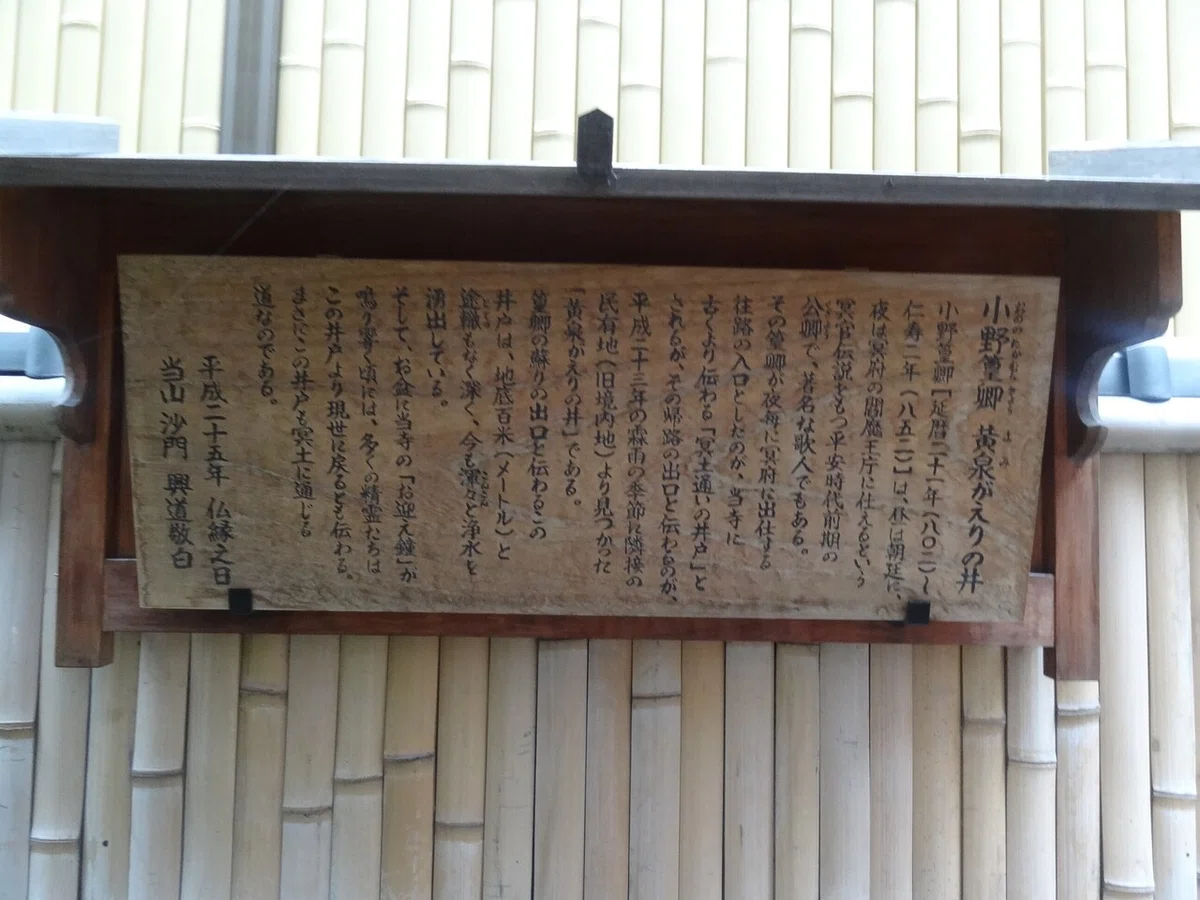 小野篁卿 黄泉が入りの井
小野篁卿［延暦二十一年（八〇二）〜
仁寿二年（八五二）］は、昼は朝廷に、
夜は冥府の閻魔王庁に仕えるという
冥官伝説をもつ平安時代前期の
公卿で、著名な歌人でもある。
その篁卿が夜毎に冥府に出仕する
往路の入口としたのが、当寺に
古くより伝わる「冥土通いの井戸」と
されるが、その帰路の出口と伝わるのが、
平成二十三年の霖雨の季節に隣接の
民有地（旧境内地）より見つかった
「黄泉がえりの井」である。
篁卿の蘇りの出口と伝わるこの
井戸は、地底百米（メートル）と
途轍もなく深く、今も滾々と浄水を
湧出している。
そして、お盆に当寺の「お迎え鐘」が
鳴り響く頃には、多くの精霊たちは
この井戸より現世に戻るとも伝わる。
まさにこの井戸も冥土に通じる
道なのである。
平成二十五年 仏縁之日
当山 沙門 興道敬白